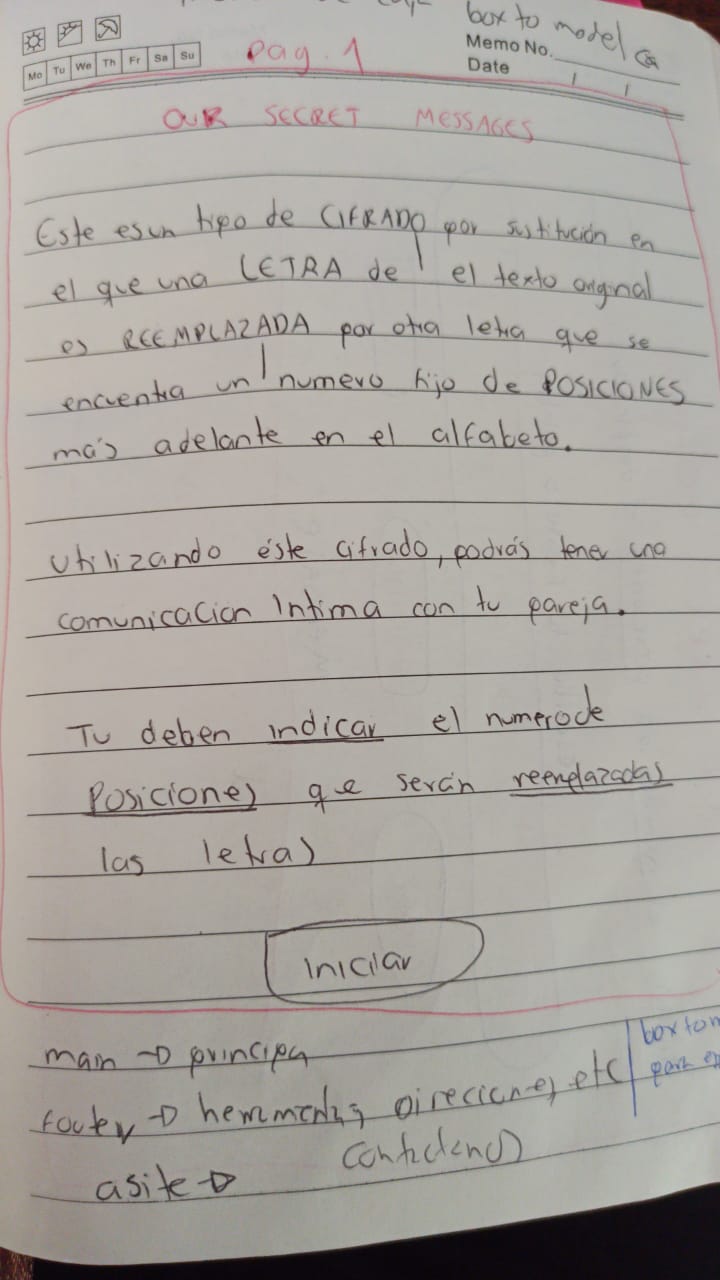 box to model
Memo No.
Date
Mo Tu We Th Fr Sa Su
pag. 1
OUR SECRET MESSAGES
Este es un tipo de CIFRADO por sustitución en
el que una LETRA de el texto original
es REEMPLAZADA por otra letra que se
encuentra un numero fijo de POSICIONES
más adelante en el alfabeto.
Utilizando éste cifrado, podrás tener una
comunicacion Intima con tu pareja.
Tu deben indicar el numero de
Posiciones que serán reemplazadas
las letras
Iniciar
main → principa
footer → direciones, etc
asite →
box to
para